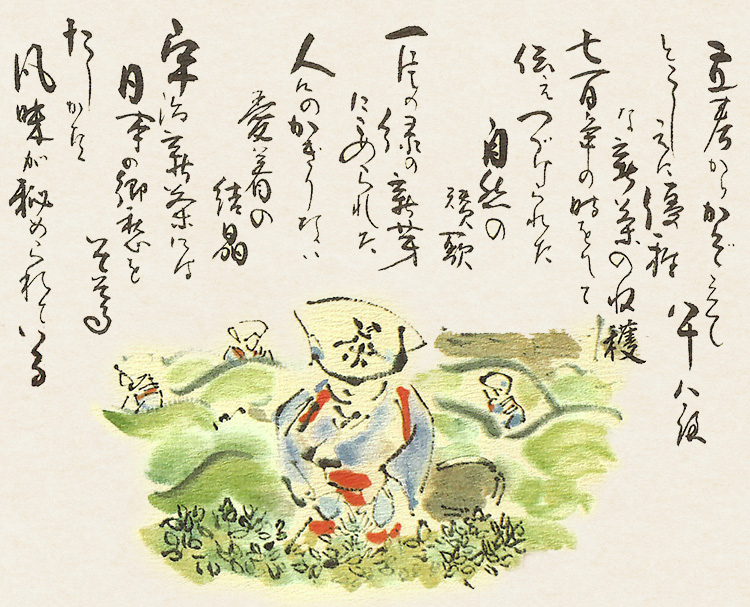 立春からかぞえて
八十八夜
とこしえに優雅
な新葉の収穫
七百年の時をへて
伝えつづけられた
自然の
讃歌
一にぎの緑の新芽
にこめられた
人々のかぎりない
愛着の
結晶
宇治新茶には
日本の郷愁を
そそる
たしかな
風味が秘められている